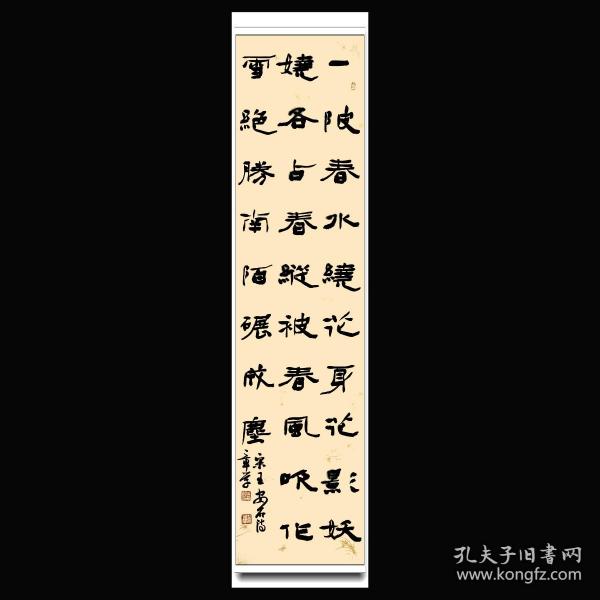 一陂春水繞花身花影妖
嬈各占春縱被春風吹作
雪絕勝南陌碾成塵
宋王安石诗
孔夫子旧書网
www.kongfz.com